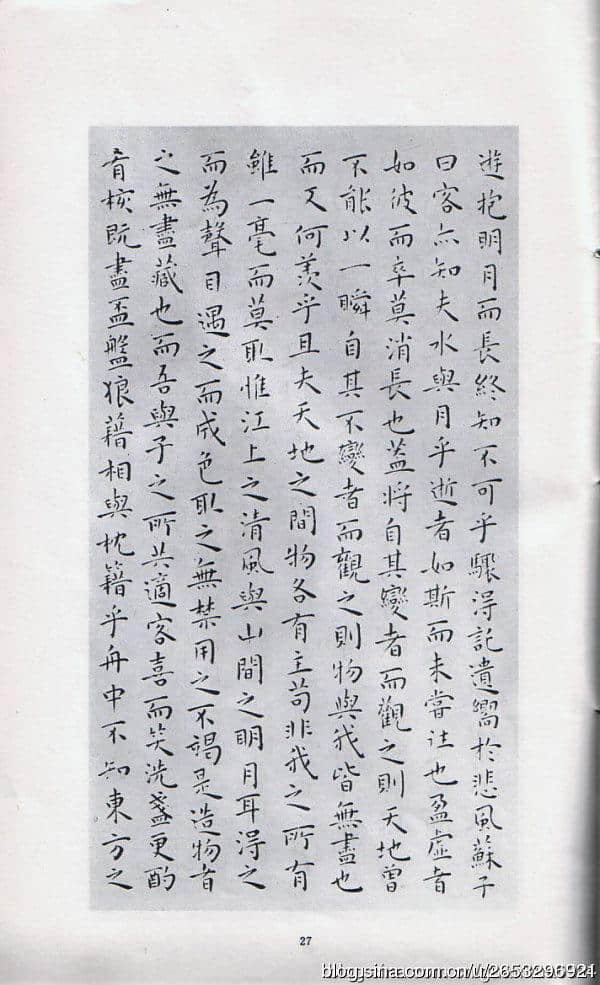 遊抱明月而長終知不可乎驟得託遺響於悲風蘇子
曰客亦知夫水與月乎逝者如斯而未嘗往也盈虛者
如彼而卒莫消長也蓋將自其變者而觀之則天地曾
不能以一瞬自其不變者而觀之則物與我皆無盡也
而又何羨乎且夫天地之間物各有主苟非我之所有
雖一毫而莫取惟江上之清風與山間之明月耳得之
而為聲目遇之而成色取之無禁用之不竭是造物者
之無盡藏也而吾與子之所共適客喜而笑洗盞更酌
肴核既盡盃盤狼藉相與枕籍乎舟中不知東方之
27